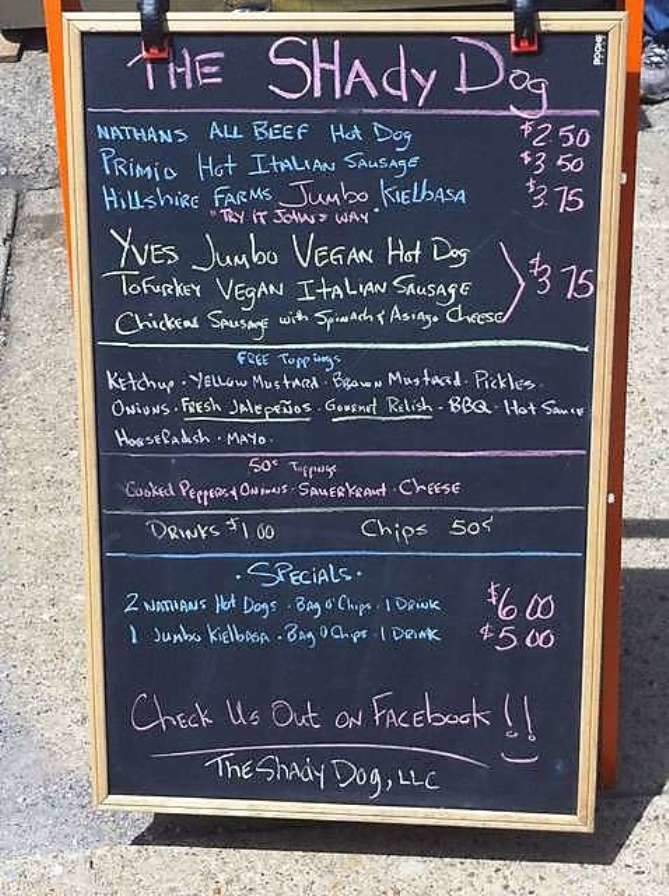 THE SHADY DOG
NATHANS ALL BEEF Hot Dog $2.50
PRIMIO Hot ITALIAN SAUSAGE $3.50
HILLSHIRE FARMS JUMBO KIELBASA $3.75
"TRY IT JOHN'S WAY"
YVES JUMBO VEGAN Hot Dog
TOFURKEY VEGAN ITALIAN SAUSAGE $3.75
CHICKEN SAUSAGE with SPINACH & ASIAGO CHEESE
FREE Toppings
Ketchup · YELLOW MUSTARD · BROWN MUSTARD · Pickles ·
ONIONS · FRESH JALEPEÑOS · Gourmet Relish · BBQ · Hot Sauce
HORSERADISH · MAYO ·
50¢ Toppings
Cooked PEPPERS & ONIONS · SAUERKRAUT · CHEESE
DRINKS $1.00 Chips 50¢
· SPECIALS ·
2 NATHANS Hot Dogs · Bag O' Chips · 1 DRINK $6.00
1 Jumbo Kielbasa · Bag O Chips · 1 DRINK $5.00
Check Us Out on Facebook!!
The Shady Dog, LLC